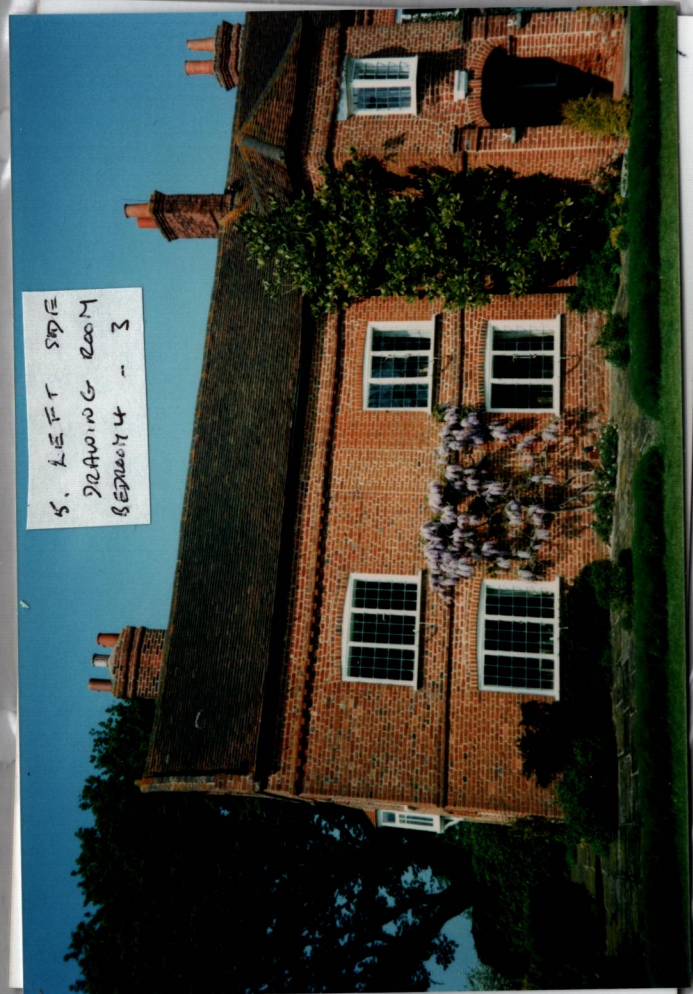 5. LEFT SIDE
DRAWING ROOM
BEDROOM 4 - 3